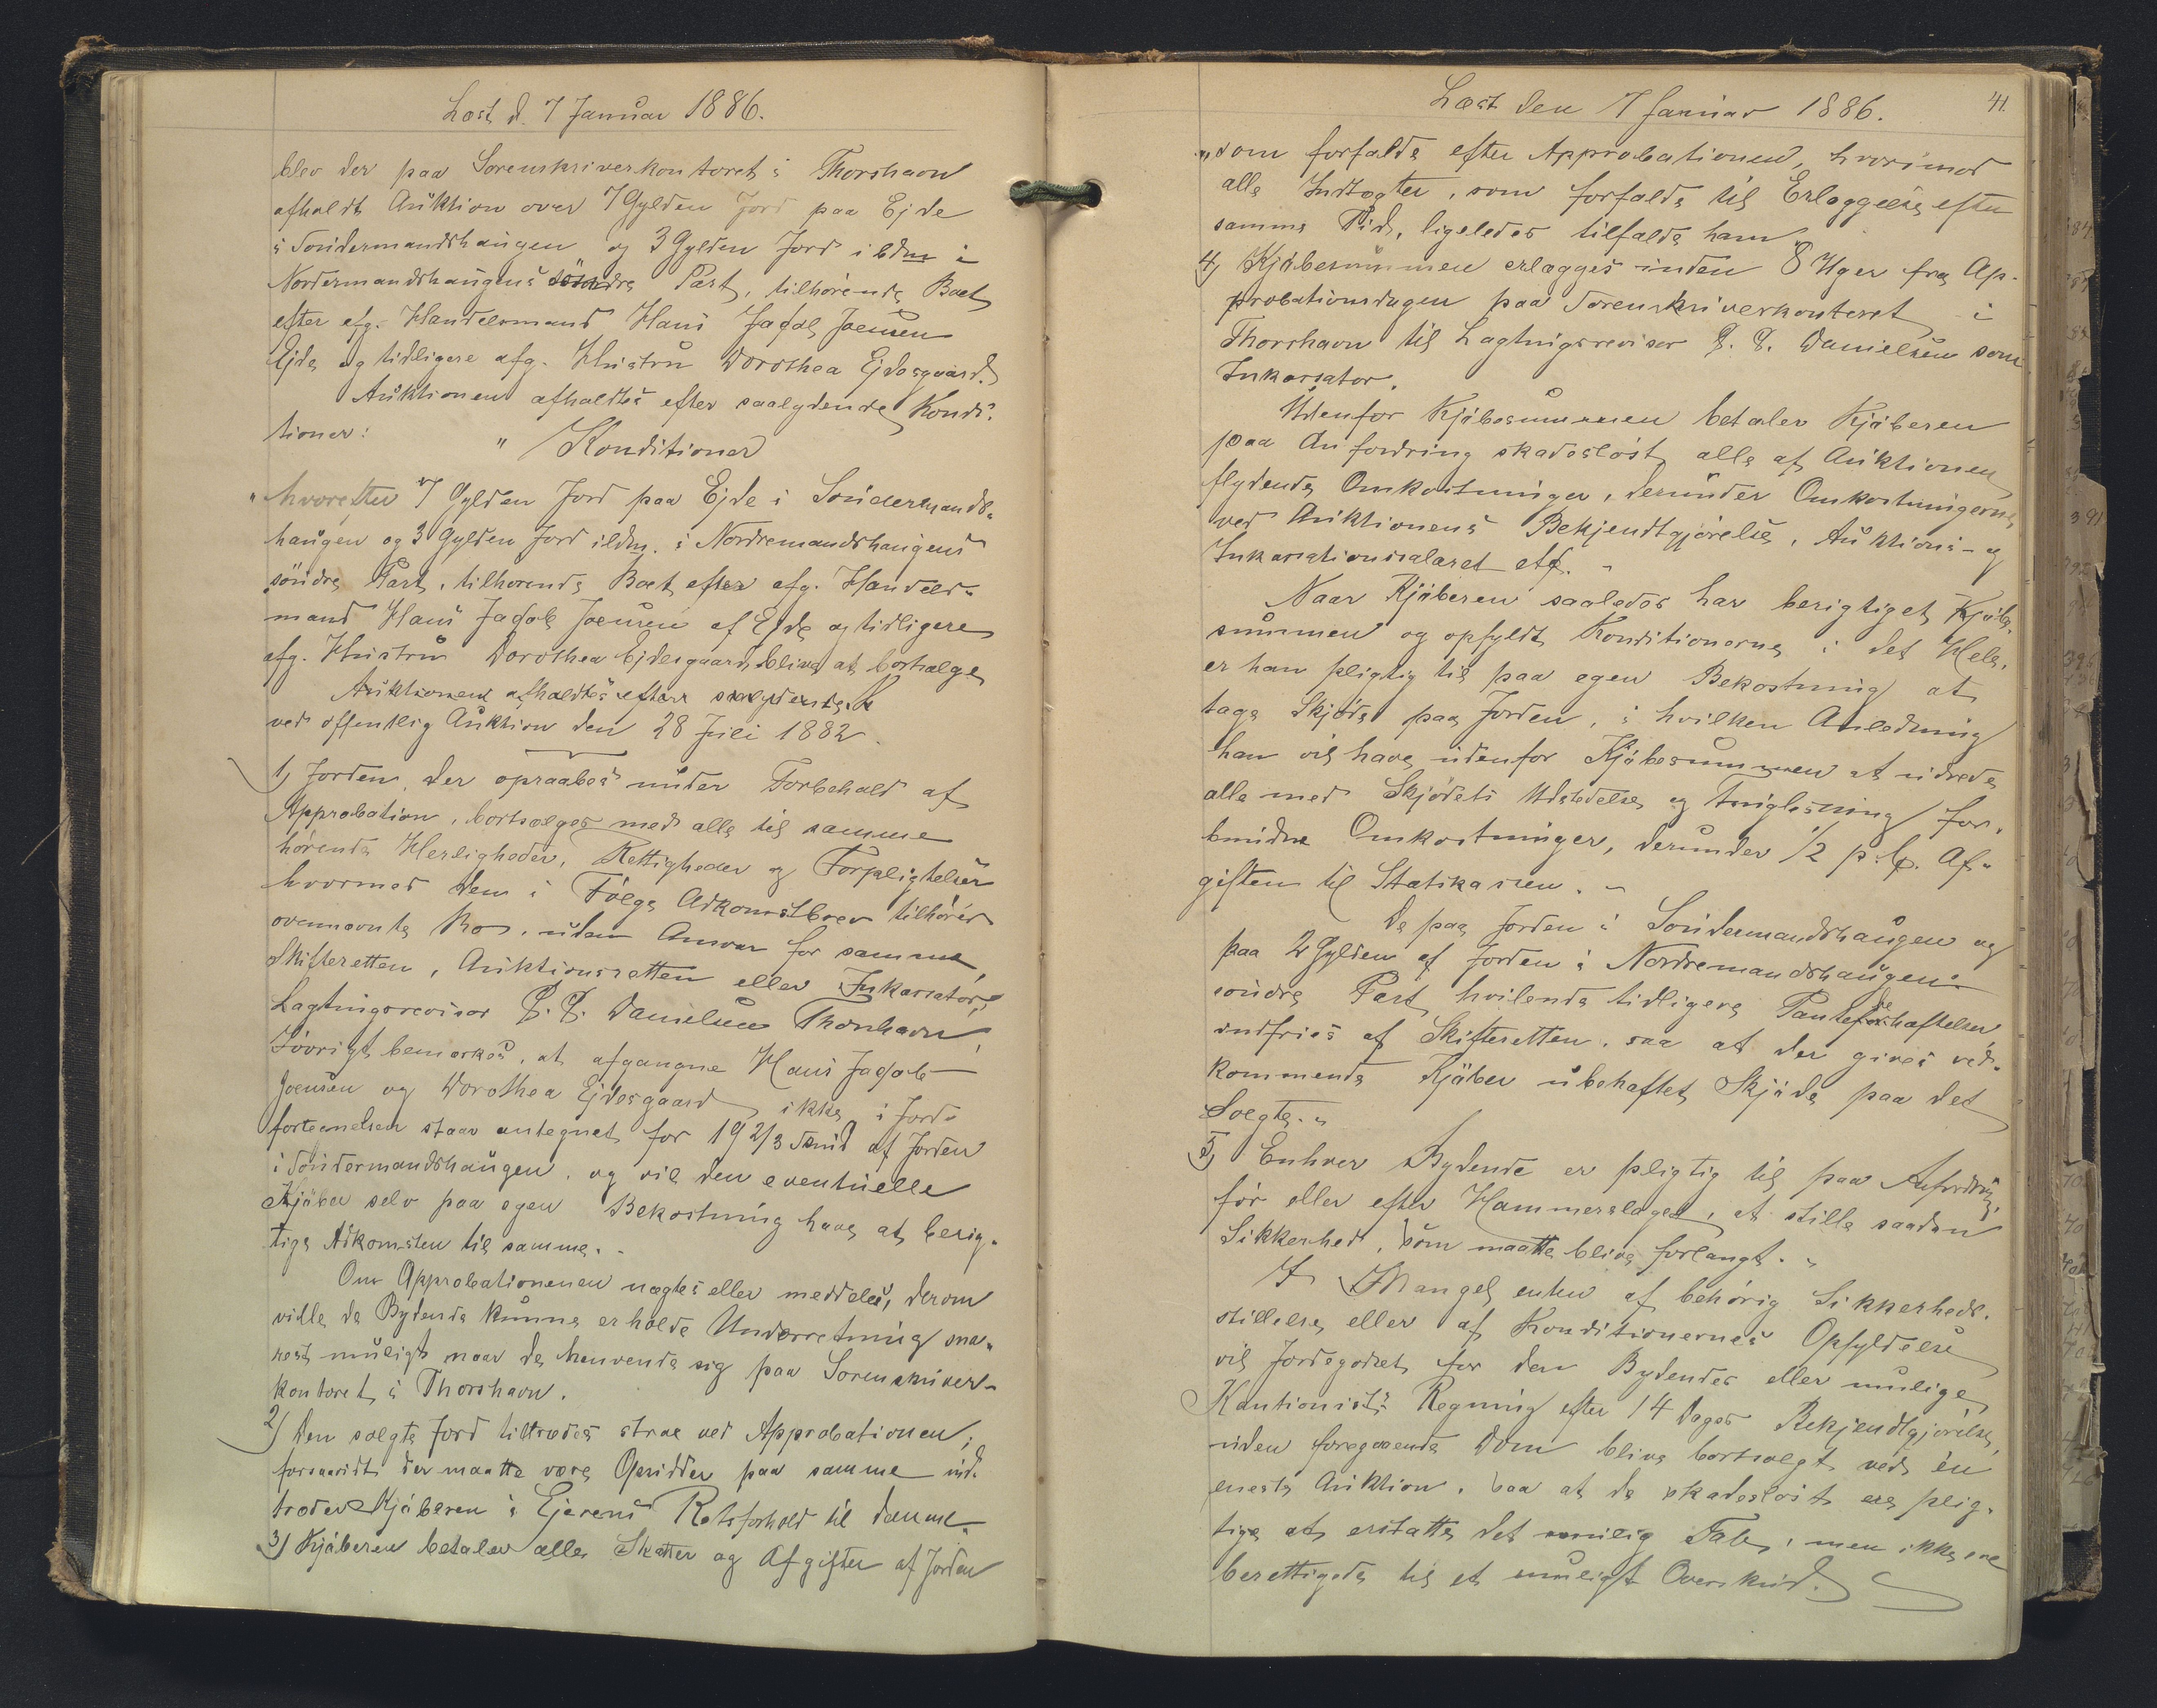 Læst d. 7 Januar 1886.
blev der paa Sorenskriverkontoret i Thorshavn
afholdt Auktion over 7 Gylden Jord paa Ejde
i Søndermandshaugen og 3 Gylden Jord i bdm i
Nordermandshaugens søndre Part, tilhørende Boet
efter afg. Handelsmand Hans Jacob Joensen
Ejde og tidligere afg. Hustru Dorothea Ejdesgaard.
Auktionen afholdtes efter saalydende Kondi-
tioner:
" Konditioner
" hvorefter 7 Gylden Jord paa Ejde i Søndermands-
haugen og 3 Gylden Jord ibdm. i Nordremandshaugens
søndre Part, tilhørende Boet efter afg. Handels-
mand Hans Jacob Joensen af Ejde og tidligere
afg. Hustru Dorothea Ejdesgaard, bliver at bortsælge
Auktionen afholdtes efter saalydende K
ved offentlig Auktion den 28 Juli 1882.
1) Jorden, der opraabes under Forbehold af
Approbation, bortsælges med alle til samme
hørende Herligheder, Rettigheder og Forpligtelser
hvormed den i Følge Adkomstbrev tilhører
ovennævnte Bo, uden Ansvar for samme,
Skifteretten, Auktionsretten eller Inkassator,
Lagtingsrevisor P. P. Danielsen Thorshavn,
Iøvrigt bemærkes, at afgangne Hans Jacob
Joensen og Dorothea Ejdesgaard ikke i Jord-
fortegnelsen staar antegnet for 19 2/3 Skind af Jorden
i Søndermandshaugen, og vil den eventuelle
Kjøber selv paa egen Bekostning have at berig-
tige Adkomsten til samme. -
Om Approbationenen nægtes eller meddeles, derom
ville de Bydende kunne erholde Underretning sna-
rest muligt naar de henvende sig paa Sorenskriver-
kontoret i Thorshavn.
2) Den solgte Jord tiltrædes strax ved Approbationen;
forsaavidt der maatte være Opsidder paa samme ind-
træder Kjøberen i Ejerens Retsforhold til denne.
3) Kjøberen betaler alle Skatter og Afgifter af Jorden
Læst den 7 Januar 1886.
41.
" som forfalde efter Approbationen, hvorimod
alle Indtægter, som forfalde til Erlæggelse efter
samme Tid, ligeledes tilfalde ham.
4) Kjøbesummen erlægges inden 8 Uger fra Ap-
probationsdagen paa Sorenskriverkontoret i
Thorshavn til Lagtingsrevisor P. P. Danielsen som
Inkassator.
Udenfor Kjøbesummen betaler Kjøberen
paa Anfordring skadesløst alle af Auktionen
flydende Omkostninger, derunder Omkostningerne
ved Auktionens Bekjendtgjørelse, Auktions- og
Inkassationssalaret etc. -
Naar Kjøberen saaledes har berigtiget Kjøbe-
summen og opfyldt Konditionerne i det Hele,
er han pligtig til paa egen Bekostning at
tage Skjøde paa Jorden, i hvilken Anledning
han vil have udenfor Kjøbesummen at udrede
alle med Skjødets Udstedelse og Tinglæsning for-
bundne Omkostninger, derunder 1/2 p.C. Af-
giften til Statskassen. -
De paa Jorden i Søndermandshaugen og
paa 2 Gylden af Jorden i Nordremandshaugens
søndre Part hvilende tidligere Pantebehæftelser
indfries af Skifteretten, saa at der gives ved-
kommende Kjøber ubehæftet Skjøde paa det
Solgte. -
5) Enhver Bydende er pligtig til paa Anfordring,
før eller efter Hammerslaget, at stille saadan
Sikkerhed, som maatte blive forlangt. -
I Mangel enten af behørig Sikkerheds-
stillelse eller af Konditionernes Opfyldelse
vil Jordegodset for den Bydendes eller mulige
Kautionists Regning efter 14 Dages Bekjendtgjørelse,
uden foregaaende Dom blive bortsolgt ved én
eneste Auktion, saa at de skadesløst ere plig-
tige at erstatte det mulig Tab, men ikke ere
berettigede til et muligt Overskud.